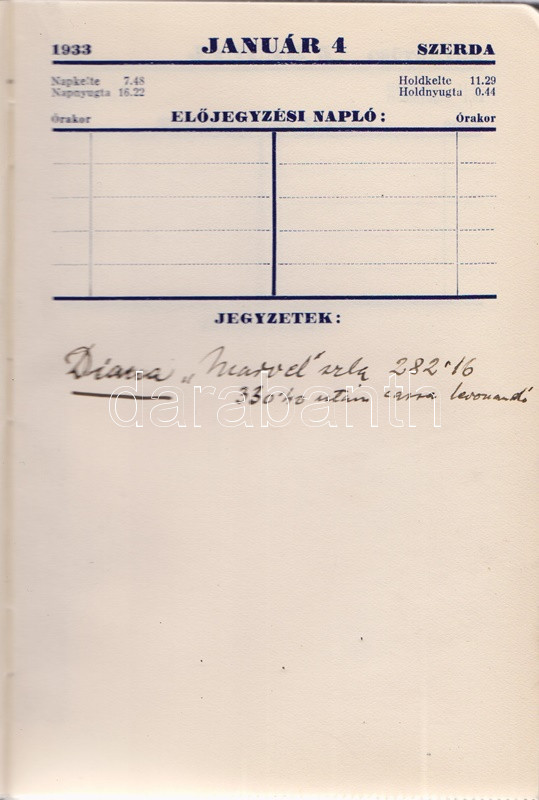 1933 JANUÁR 4 SZERDA
Napkelte 7.48 Holdkelte 11.29
Napnyugta 16.22 Holdnyugta 0.44
Órakor ELŐJEGYZÉSI NAPLÓ: Órakor
JEGYZETEK:
Diana „Marvel" szla 282·16
330·40 után cassa levonandó
darabanth